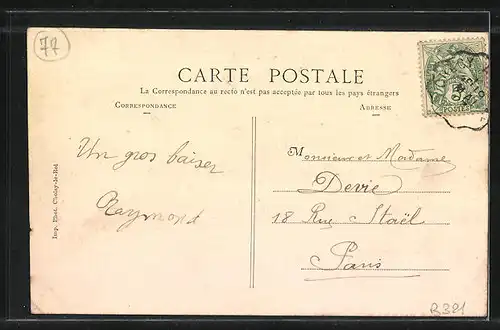 77
CARTE POSTALE
La Correspondance au recto n'est pas acceptée par tous les pays étrangers
CORRESPONDANCE
ADRESSE
Un gros baiser
Raymond
Monsieur et Madame
Devie
18 Rue Staël
Paris
Imp. Phot. Choisy-le-Roi
POSTES
R321